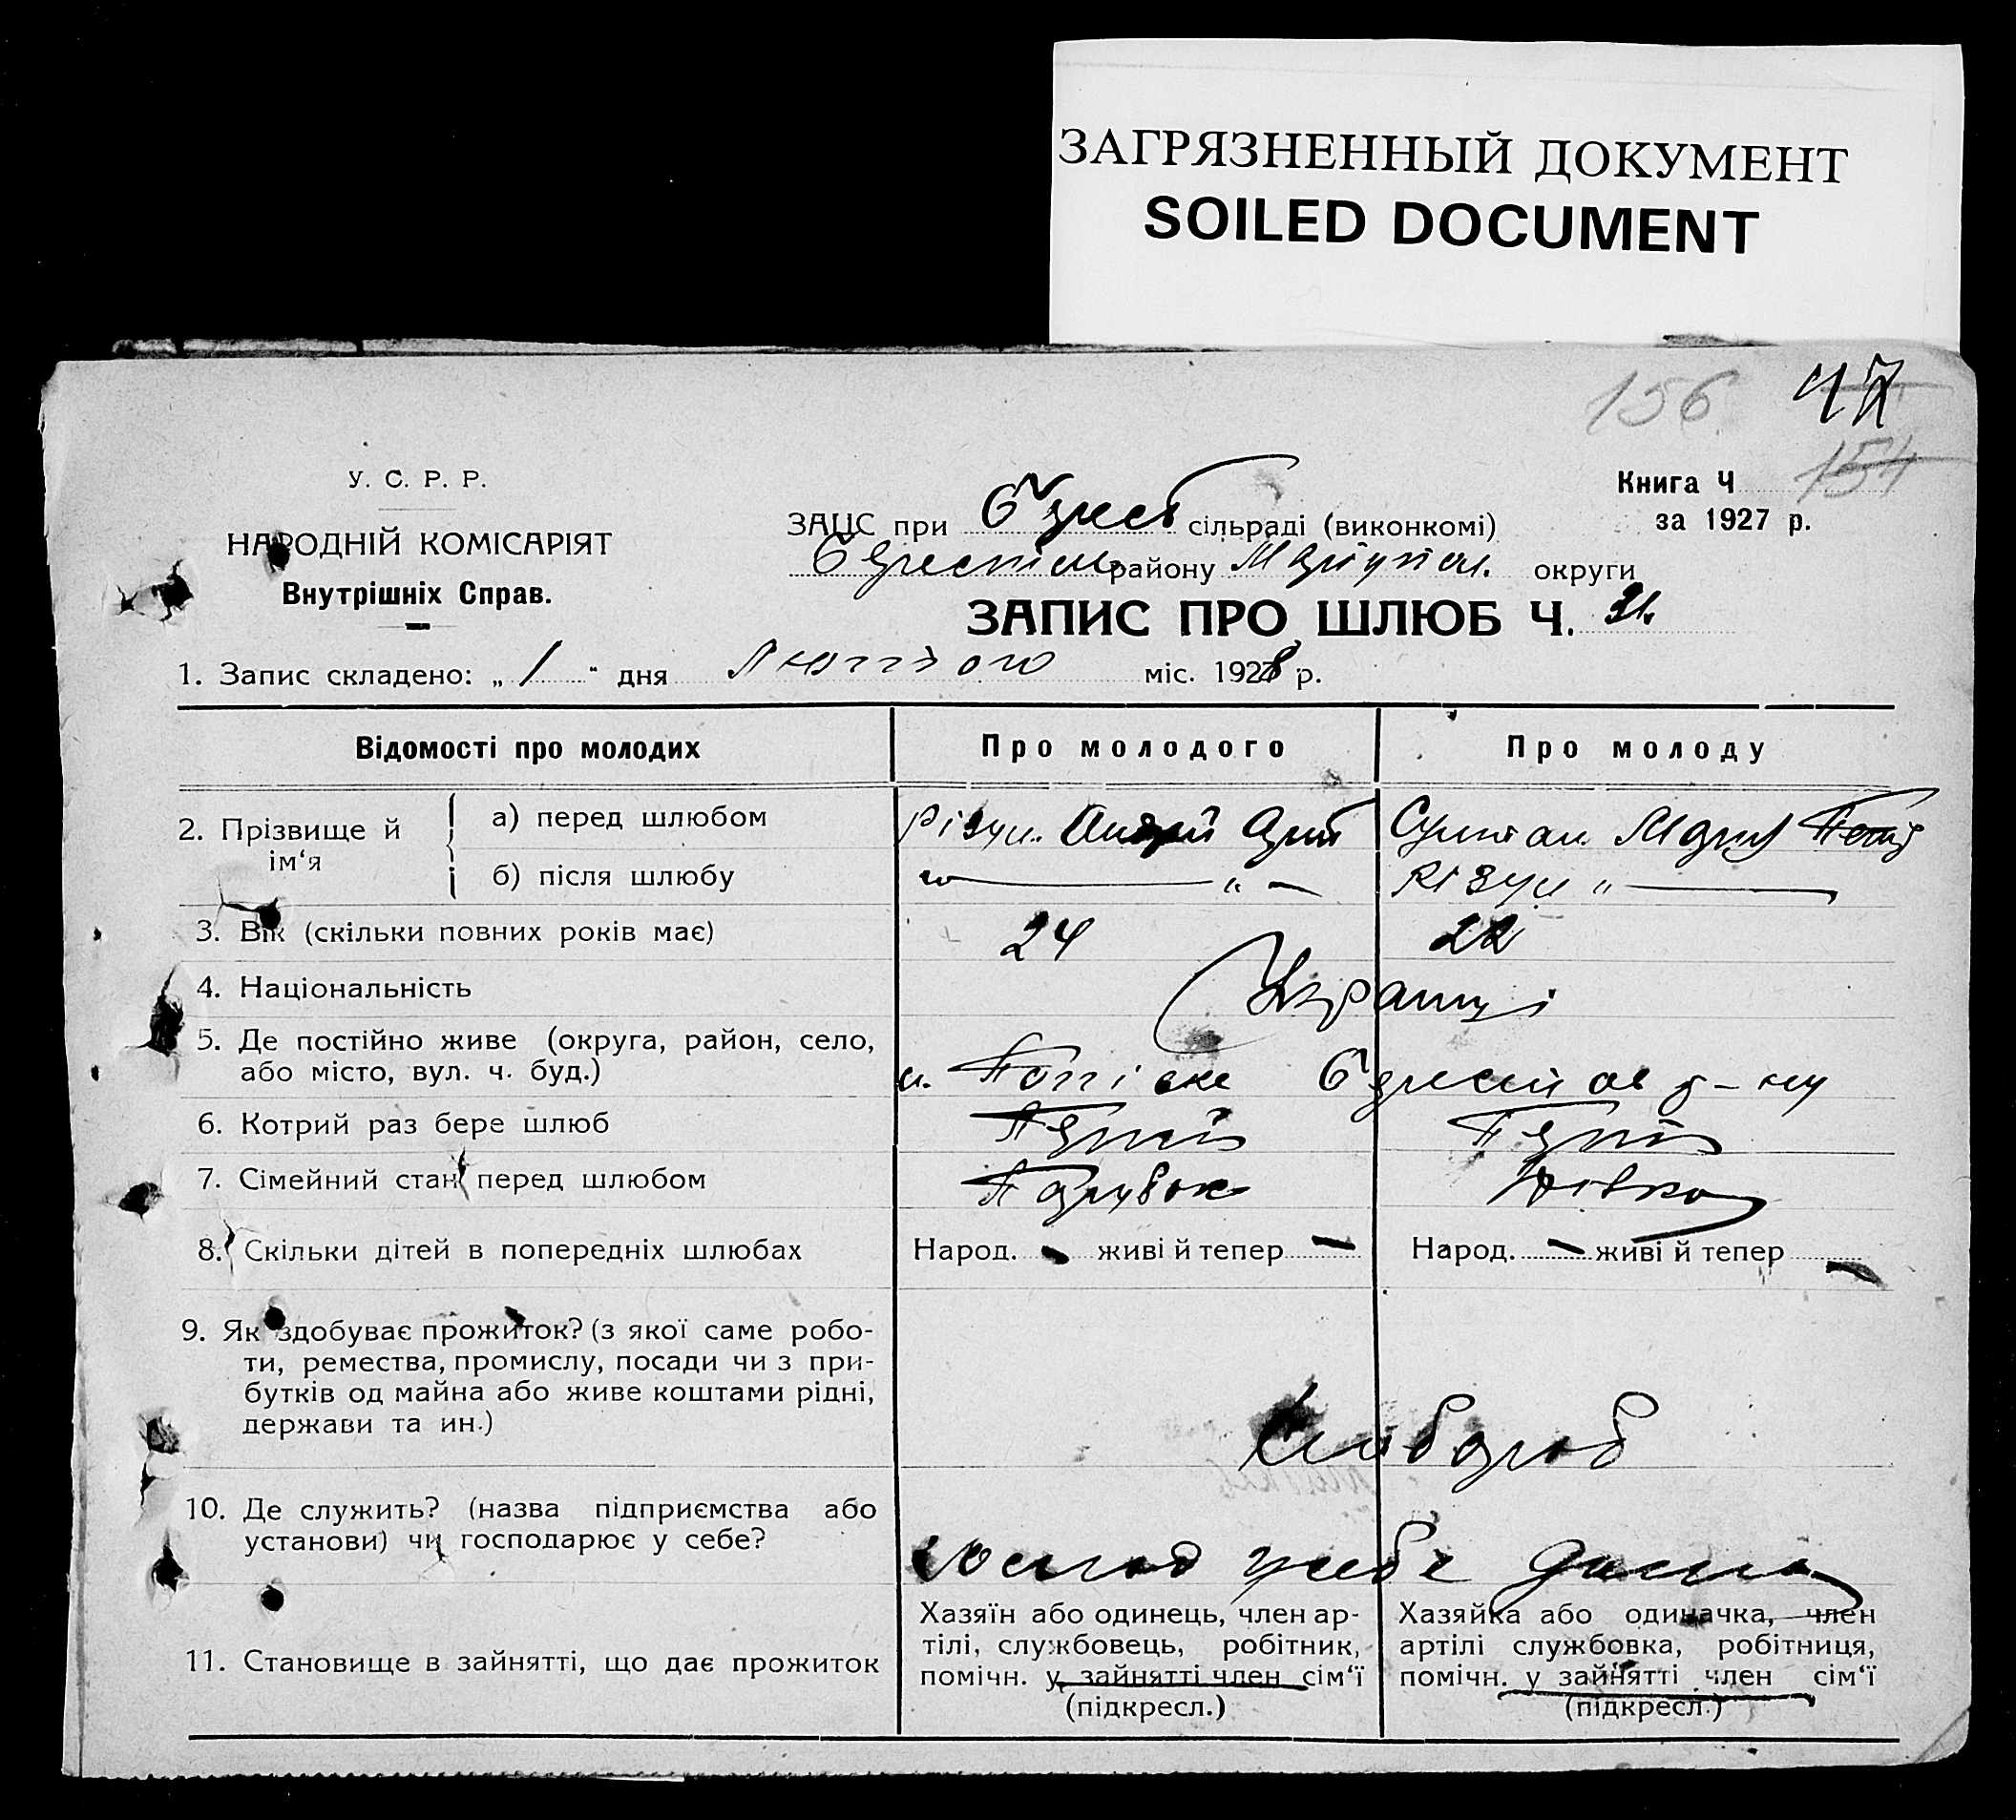 ЗАГРЯЗНЕННЫЙ ДОКУМЕНТ
SOILED DOCUMENT
156 47
154
У. С. Р. Р.
НАРОДНІЙ КОМІСАРІЯТ
Внутрішніх Справ.
Книга Ч
за 1927 р.
ЗАЦС при сільраді (виконкомі)
району Маріупол. округи
ЗАПИС ПРО ШЛЮБ Ч.
1. Запис складено: „ 1 " дня Лютого міс. 1928 р.
Відомості про молодих Про молодого Про молоду
2. Прізвище й ім'я
а) перед шлюбом Різун Андрій Марія
б) після шлюбу — " — Різун " —
3. Вік (скільки повних років має) 24 22
4. Національність Українці
5. Де постійно живе (округа, район, село,
або місто, вул. ч. буд.) р-ну
6. Котрий раз бере шлюб Перший Перший
7. Сімейний стан перед шлюбом Парубок Дівка
8. Скільки дітей в попередніх шлюбах Народ. — живі й тепер — Народ. — живі й тепер —
9. Як здобуває прожиток? (з якої саме робо-
ти, ремества, промислу, посади чи з при-
бутків од майна або живе коштами рідні,
держави та ин.) Хлібороб
10. Де служить? (назва підприємства або
установи) чи господарює у себе? господ у себе дома
11. Становище в зайнятті, що дає прожиток
Хазяїн або одинець, член ар-
тілі, службовець, робітник,
помічн. у зайнятті член сім'ї
(підкресл.)
Хазяйка або одиначка, член
артілі службовка, робітниця,
помічн. у зайнятті член сім'ї
(підкресл.)